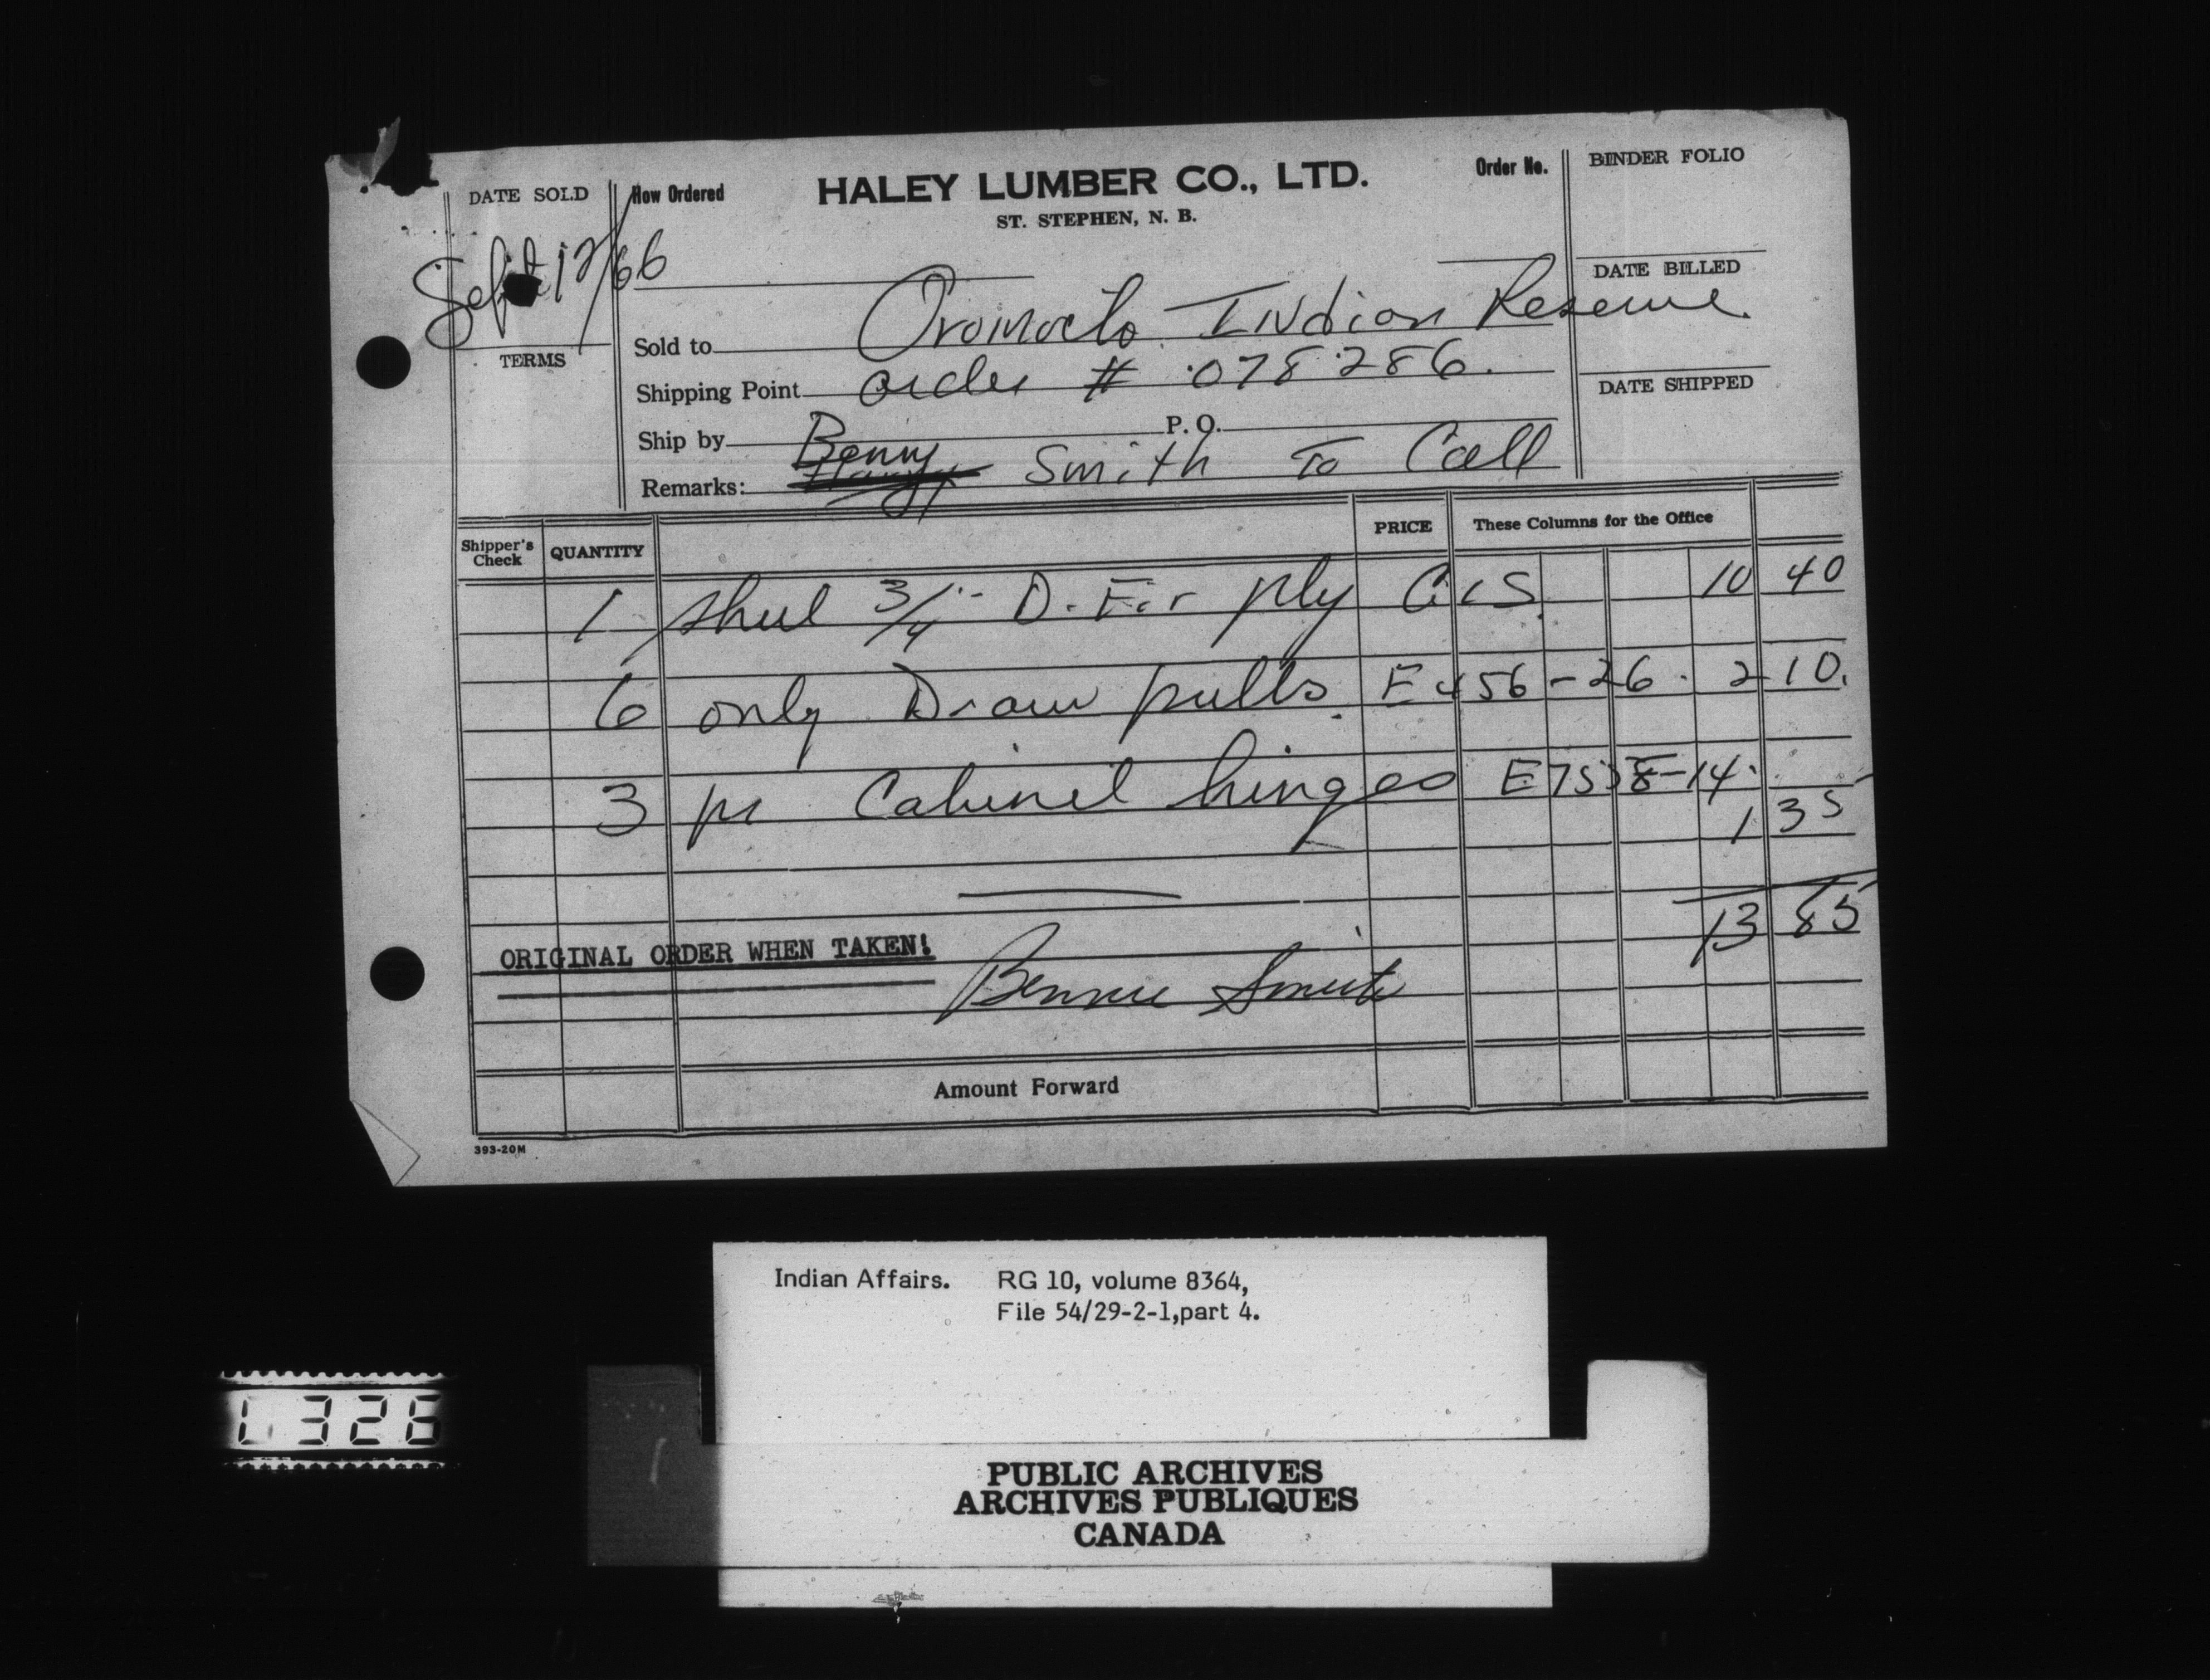 DATE SOLD How Ordered HALEY LUMBER CO., LTD. Order No. BINDER FOLIO
ST. STEPHEN, N. B.
Sept 12/66
DATE BILLED
Sold to Oromocto Indian Reserve
TERMS
Shipping Point order # 078286.
DATE SHIPPED
Ship by P. O.
Remarks: Benny Smith To Call
Shipper's Check QUANTITY PRICE These Columns for the Office
1 sheet 3/4" D. Fir ply G1S 10 40
6 only Draw pulls E456-26. 2 10.
3 pr Cabinet hinges E7538-14.
1 35
13 85
ORIGINAL ORDER WHEN TAKEN!
Bennie Smith
Amount Forward
393-20M
Indian Affairs. RG 10, volume 8364,
File 54/29-2-1,part 4.
326
PUBLIC ARCHIVES
ARCHIVES PUBLIQUES
CANADA